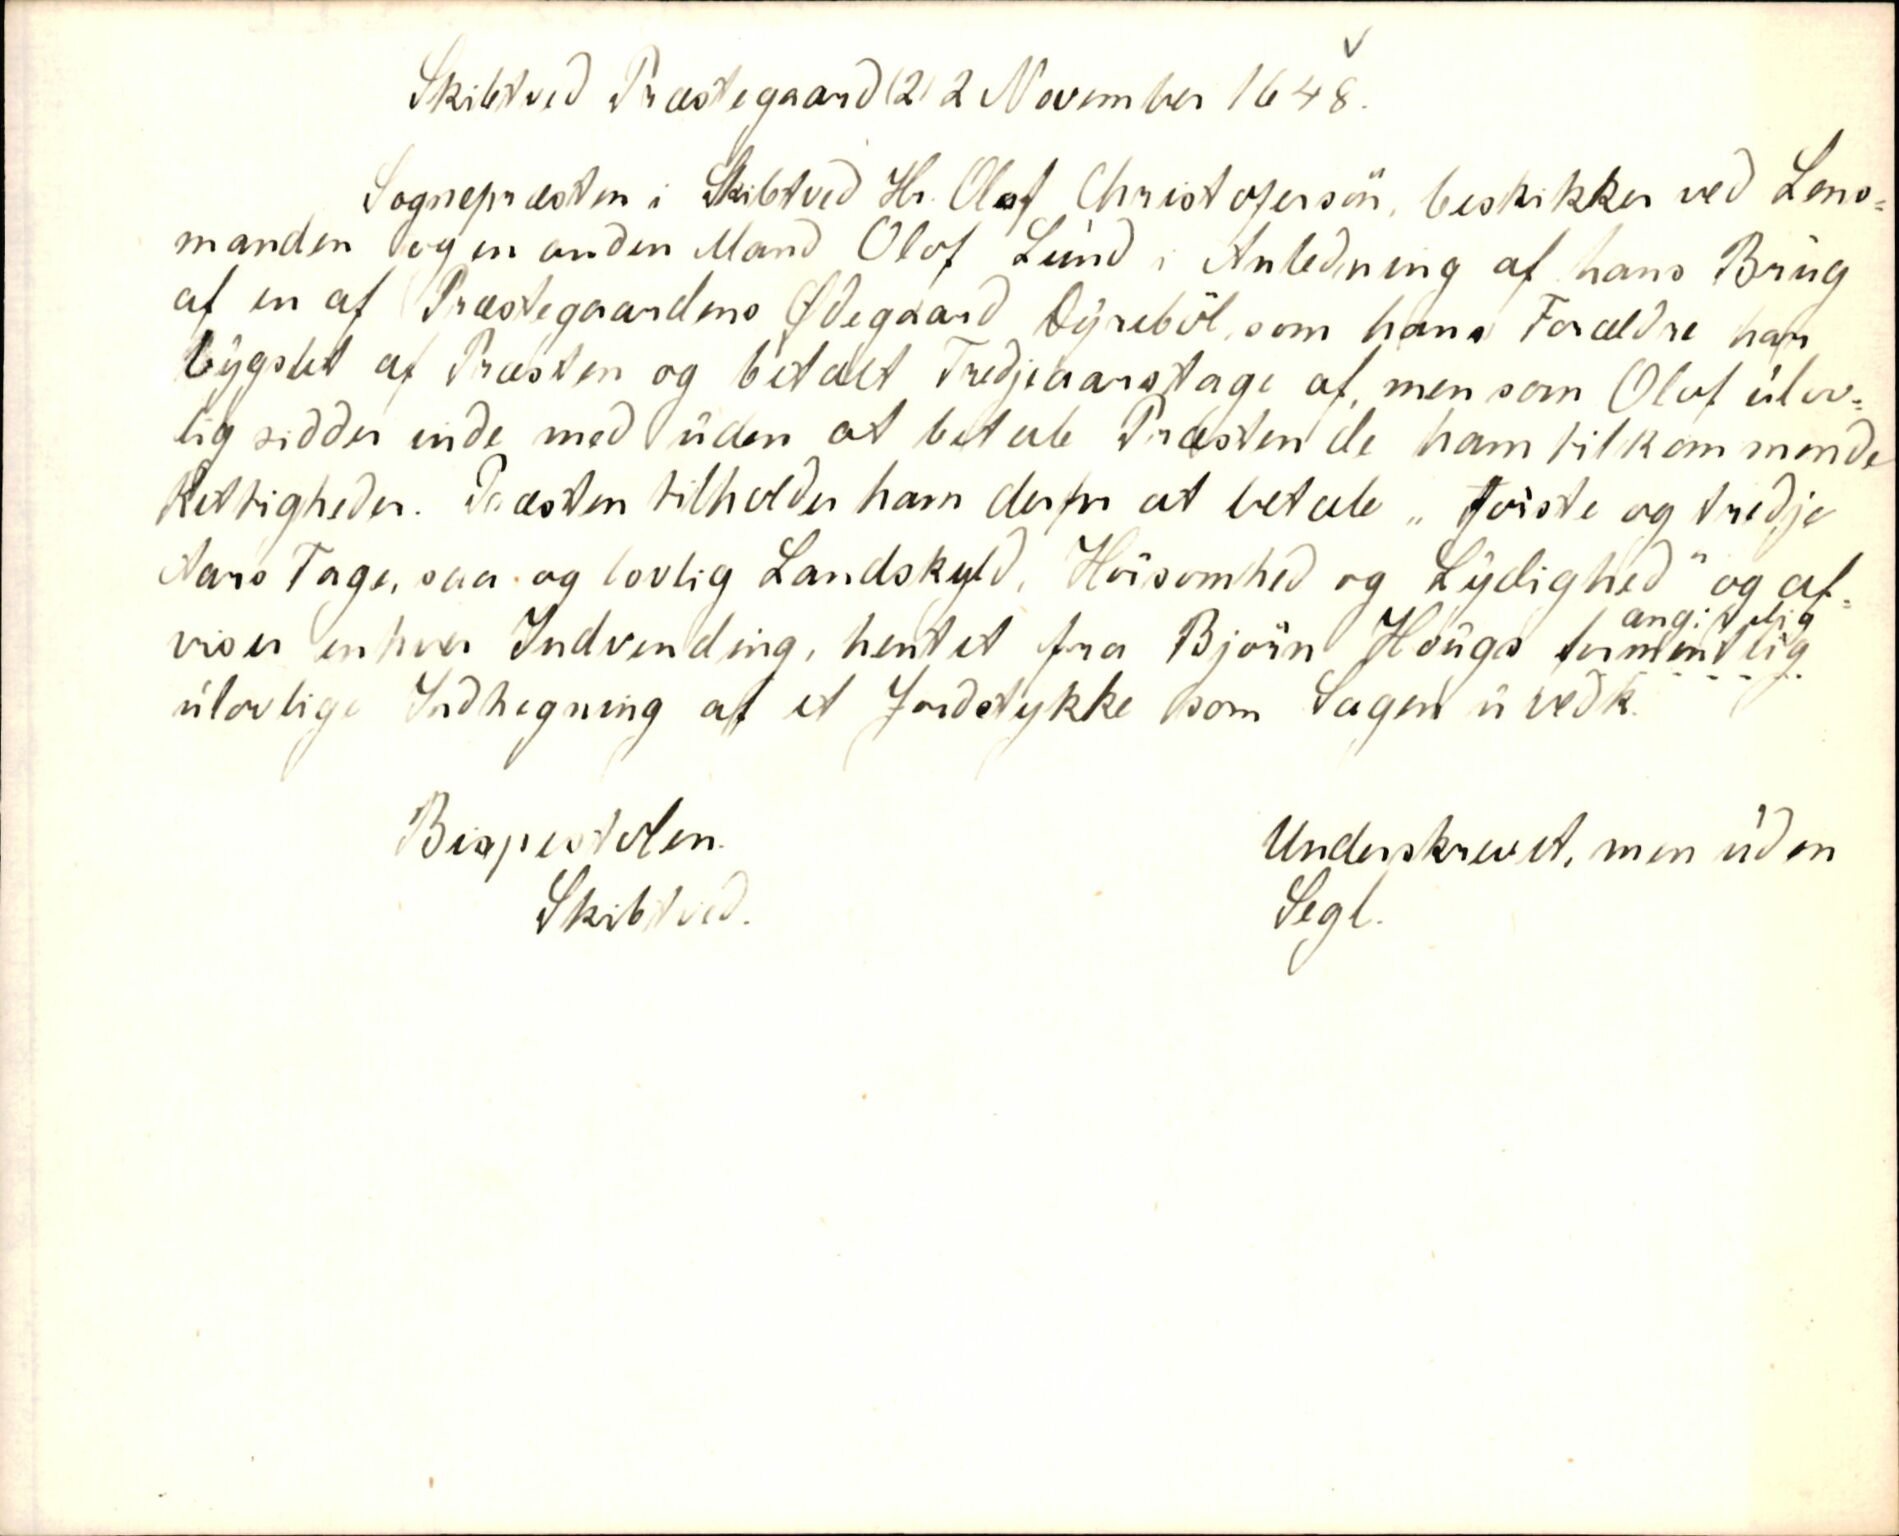 Skibtved Præstegaard (2) 2 November 1648.
Sognepræsten i Skibtved Hr. Olaf Christofersön, beskikker ved Lens=
manden og en anden Mand Olof Lund i Anledning af hans Brug
af en af Præstegaardens Ødegaard Dyreböl, som hans Forældre har
bygslet af Præsten og betalt Tredjeaarstage af, men som Olof ulov=
lig sidder inde med uden at betale Præsten de ham tilkommende
Rettigheder. Præsten tilholder ham derfor at betale „förste og tredje
Aars Tage, saa og lovlig Landskyld, Hörsomhed og Lydighed" og af=
viser enhver Indvending, hentet fra Björn Hougs formentlig
angivelig
ulovlige Indhegning af et Jordstykke som Sagen uvedk.
Bispestolen.
Skibtved.
Underskrevet, men uden
Segl.